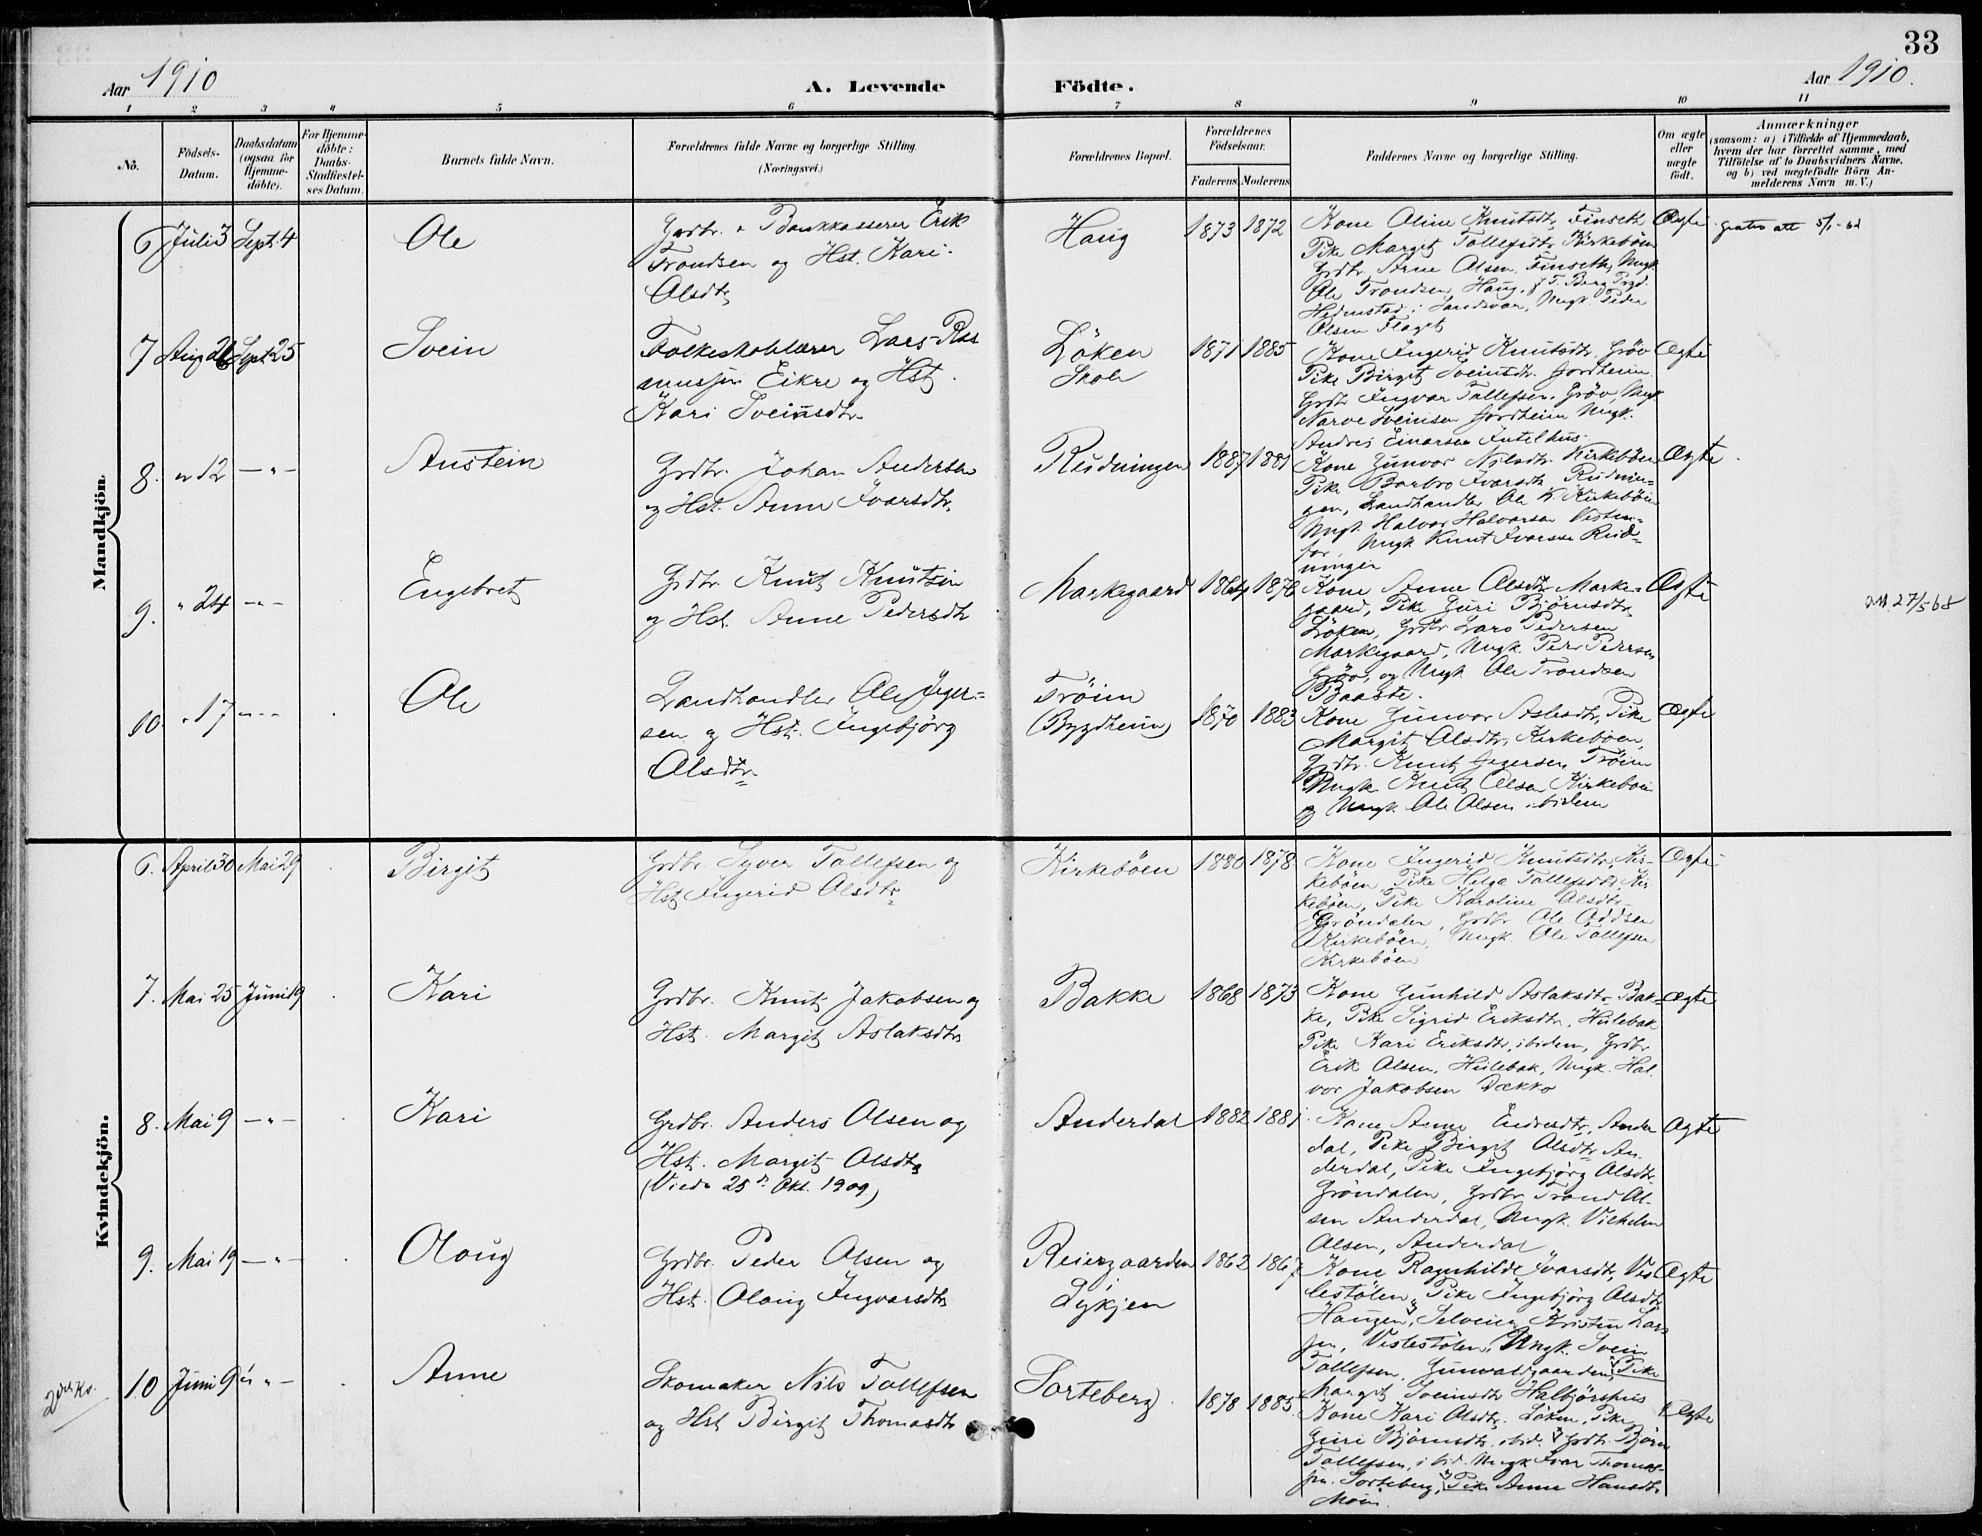 33
Aar 1910
A. Levende Födte.
Aar 1910.
1 2 3 4 5 6 7 8 9 10 11
No.
Födsels-
Datum.
Daabsdatum
(ogsaa for
Hjemme-
döbte).
For Hjemme-
döbte:
Daabs-
Stadfæstel-
ses Datum.
Barnets fulde Navn.
Forældrenes fulde Navne og borgerlige Stilling.
(Næringsvei.)
Forældrenes Bopæl.
Forældrenes
Födselsaar.
Faderens. Moderens
Faddernes Navne og borgerlige Stilling.
Om ægte
eller
uægte
födt.
Anmærkninger
(saasom: a) i Tilfælde af Hjemmedaab,
hvem der har forrettet samme, med
Tilföielse af to Daabsvidners Navne,
og b) ved uægtefödte Börn An-
melderens Navn m. V.)
Mandkjön.
6 Juli 3 Sept. 4
Ole
Grdbr. & Bankkasserer Erik
Trondsen og Hst. Kari
Olsdtr
Haug
1873 1872
Kone Oline Knutsdtr, Finseth
Pike Margit Tollefsdtr Kirkeböen
Grdbr. Arne Olsen Finseth, Ungk.
Ole Trondsen Haug,
Hedenstad i Sandsvær, Ungk. Peder
Olsen Flaget
Ægte
gratis att 5/1-62
7 Aug 26 Sept. 25
Svein
Folkeskolelærer Lars Ras
mussen Eikre og Hst.
Kari Sveinsdtr
Löken
Skole
1871 1885
Kone Ingerid Knutsdtr. Gröv
Pike Birgit Sveinsdtr. Jordheim
Grdbr Ingvar Tollefsen, Gröv, Ungk
Narve Sveinsen Jordheim Ungk.
Andres Einarsen Intelhus.
Ægte
8. " 12 — " —
Anstein
Grdbr. Johan Andersen
og Hst. Anne Ivarsdtr.
Rudningen
1887 1881
Kone Gunvor Nilsdtr. Kirkeböen
Pike Barbro Ivarsdtr Rudnin-
gen, Landhandler Ole K. Kirkeböen
Ungk. Halvor Halvorsen Vesten-
for, Ungk Knut Ivarsen Rud-
ningen
Ægte.
9. " 24 — " —
Engebret
Grdbr. Knut Knutsen
og Hst. Anne Pedersdtr
Markegaard
1864 1876
Kone Anne Olsdtr Marke-
gaard, Pike Guri Björnsdtr.
Löken, Grdbr Lars Pedersen
Markegaard, Ungk. Per Pedersen
Gröv, og Ungk Ole Trondsen
Baaste.
Ægte
att 27/5 68
10. " 17 — " —
Ole
Landhandler Ole Jeger-
sen og Hst. Ingebjörg
Olsdtr.
Tröim
(Bygdheim)
1870 1883
Kone Gunvor Aslesdtr, Pike
Margit Olsdtr. Kirkeböen,
Grdbr. Knut Jegersen Tröim
Ungk Knut Olsen Kirkeböen
og Ungk. Ole Olsen ibidem
Ægte
Kvindekjön.
6. April 30 Mai 29
Birgit
Grdbr. Syver Tollefsen og
Hst Ingerid Olsdtr
Kirkeböen
1880 1878
Kone Ingerid Knutsdtr Kir-
keböen Pike Helga Tollefsdtr Kir
keböen, Pike Karoline Olsdtr.
Gröndalen, Grdbr. Ole Oddsen
Kirkeböen, Ungk. Ole Tollefsen
Kirkeböen
Ægte
7. Mai 25 Juni 19
Kari
Grdbr. Knut Jakobsen og
Hst. Margit Aslaksdtr
Bakke
1868 1873
Kone Gunhild Aslaksdtr Bak-
ke, Pike Sigrid Eriksdtr. Hulebak
Pike Kari Eriksdtr, ibidem, Grdbr
Erik Olsen, Hulebak, Ungk. Hal
vor Jakobsen Dække
Ægte
8. Mai 9 — " —
Kari
Grdbr. Anders Olsen og
Hst. Margit Olsdtr
(Viede 25de Okt. 1909)
Anderdal
1882 1881
Kone Anne Endresdtr, Ander
dal, Pike Birgit Olsdtr An
derdal, Pike Ingebjörg Olsdtr
Gröndalen, Grdbr Trond Ol-
sen Anderdal, Ungk. Vilhelm
Olsen, Anderdal
Ægte
9. Mai 19 — " —
Olaug
Grdbr. Peder Olsen og
Hst. Olaug Ingvarsdtr
Reiergaarden
i
Lykjen
1862 1867
Kone Ragnhilde Ivarsdtr, Ves
lestölen, Pike Ingebjörg Olsdtr
Haugen, Selveier Kristen Lars
sen, Veslestölen, Ungk. Svein
Tollefsen, Gunvaldgaarden, Pike
Margit Sveinsdtr Halbjörshus
Ægte
2den Kv.
10 Juni 9 " —
Anne
Skomaker Nils Tollefsen
og Hst Birgit Thomasdtr
Sorteberg.
1878 1885
Kone Kari Olsdtr, Löken, Pike
Guri Björnsdtr, ibid. Grdbr Björn
Tollefsen, ibid. Ungk Ivar Thomas-
sen Sorteberg, Pike Anne Hansdtr,
Moen.
Ægte